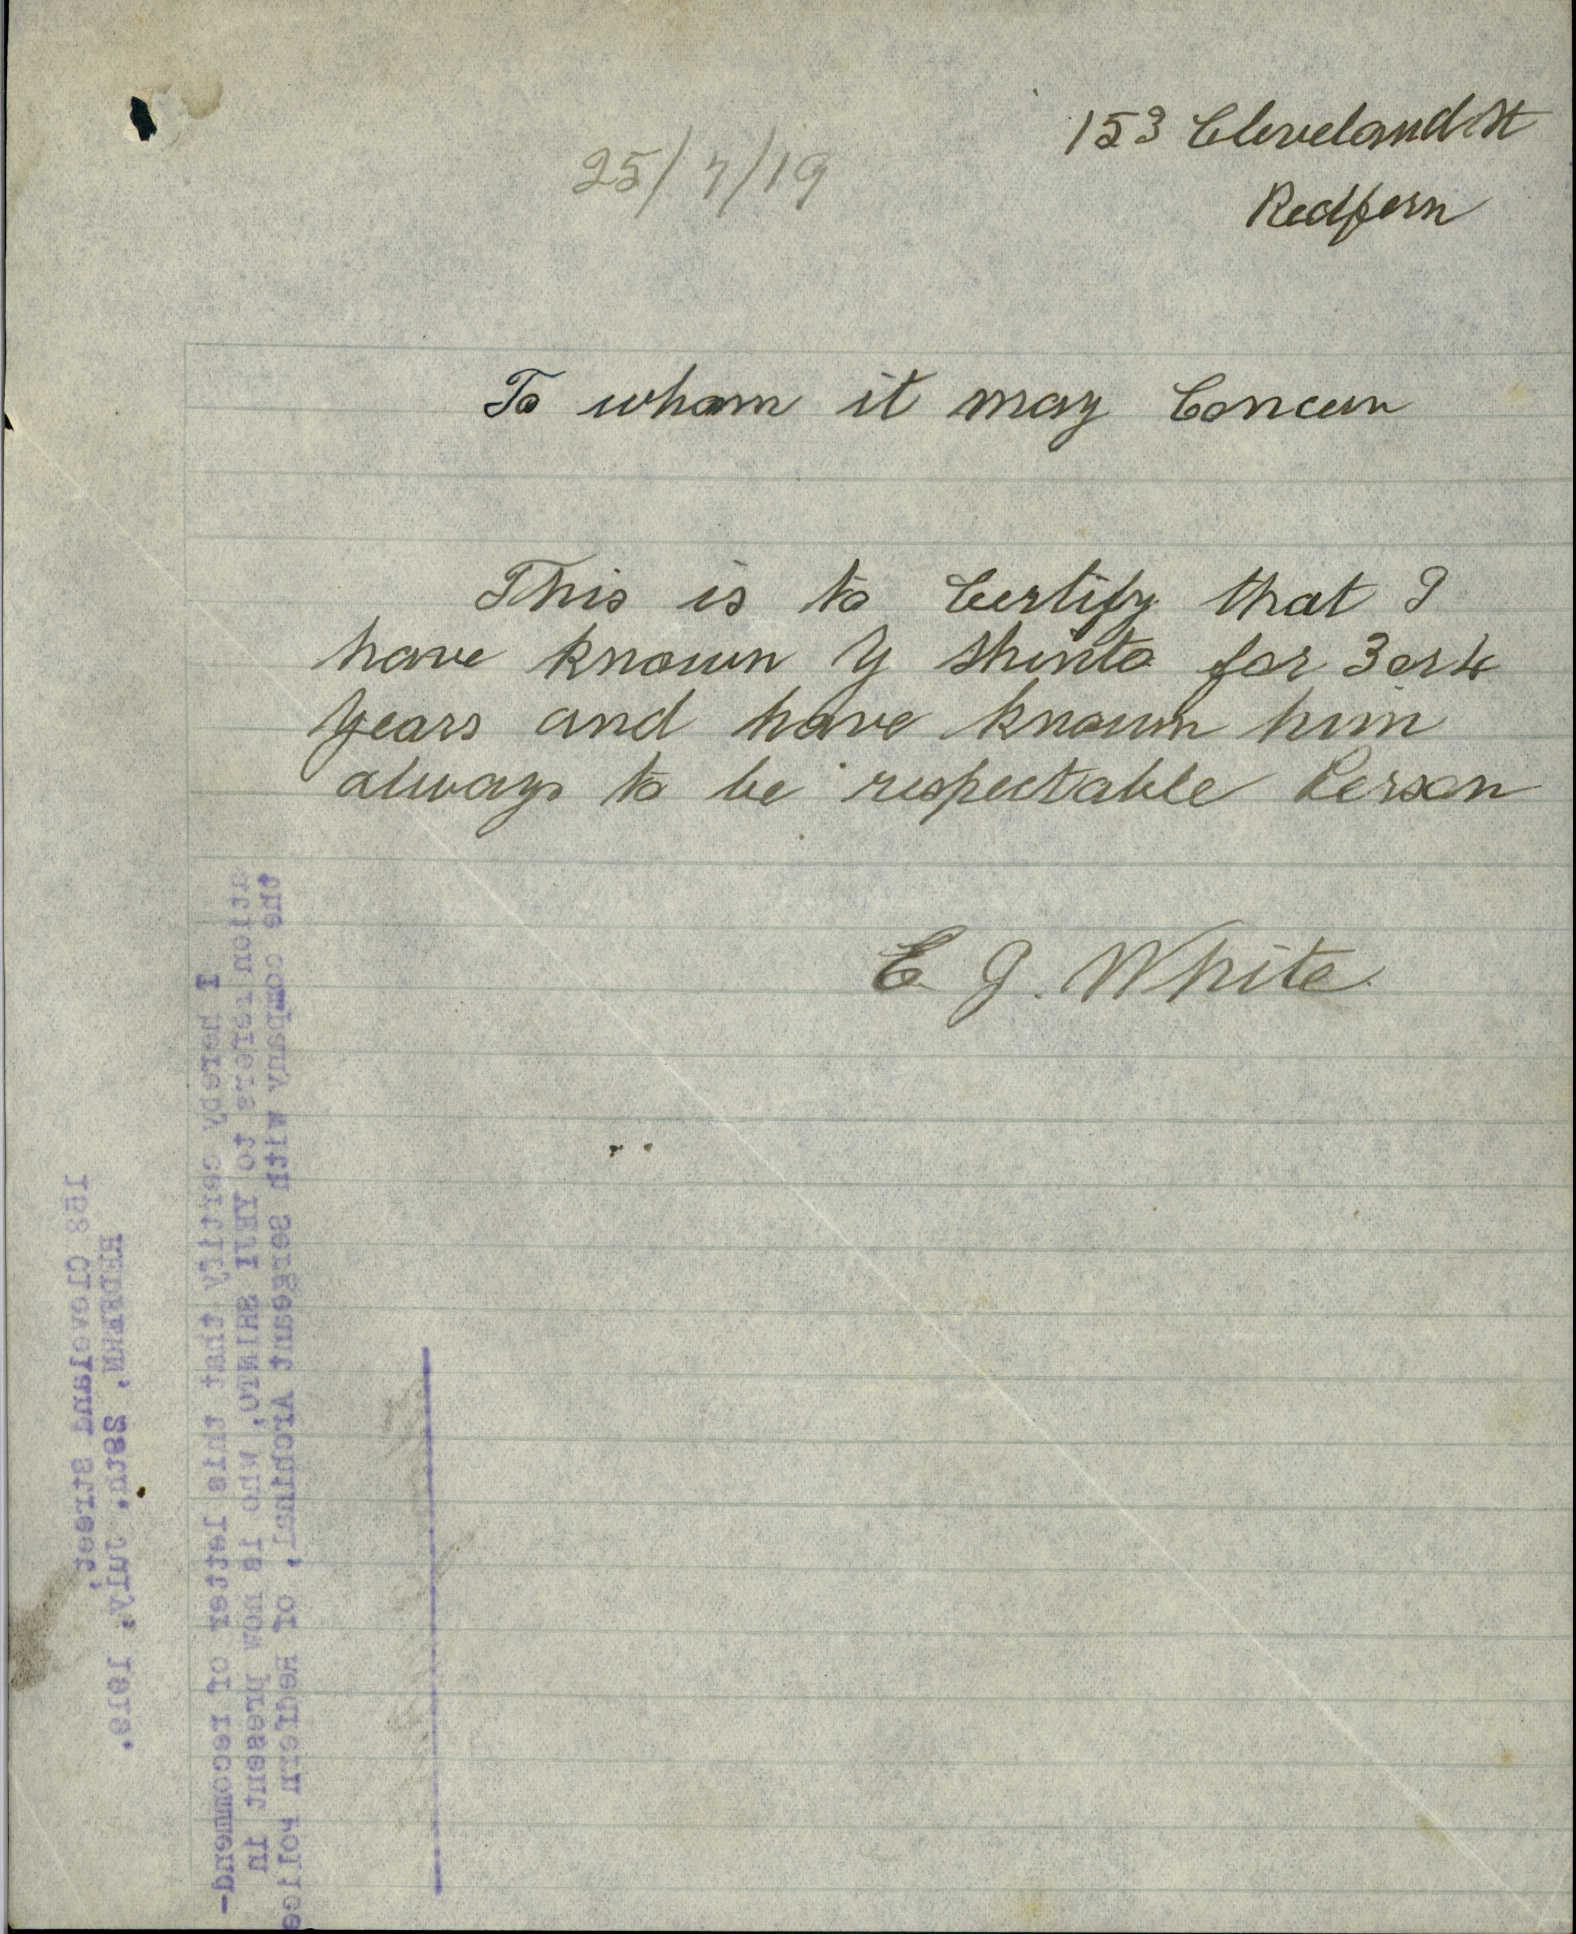 153 Cleveland St
25/7/19
Redfern
To whom it may Concern
This is to Certify that I
have known Y Shinto for 3 or 4
years and have known him
always to be respectable Person
E J. White
153 Cleveland Street,
REDFERN, 28th. July, 1919.
I hereby certify that this letter of recommend-
ation refers to YEJI SHINTO, who is now present in
the company with Sergeant Archinal, of Redfern Police